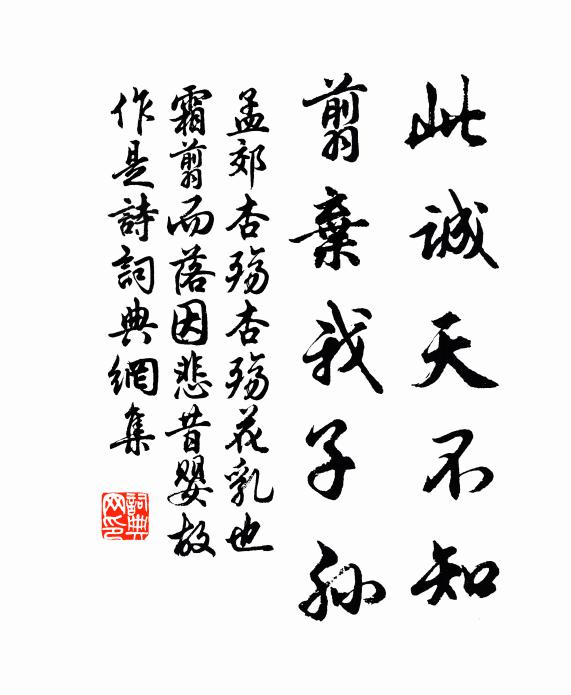 此誠天不知
翦棄我子孫
孟郊杏殤杏殤花乳也
霜翦而落因悲昔嬰故
作是詩詞典網集
詞典
网印